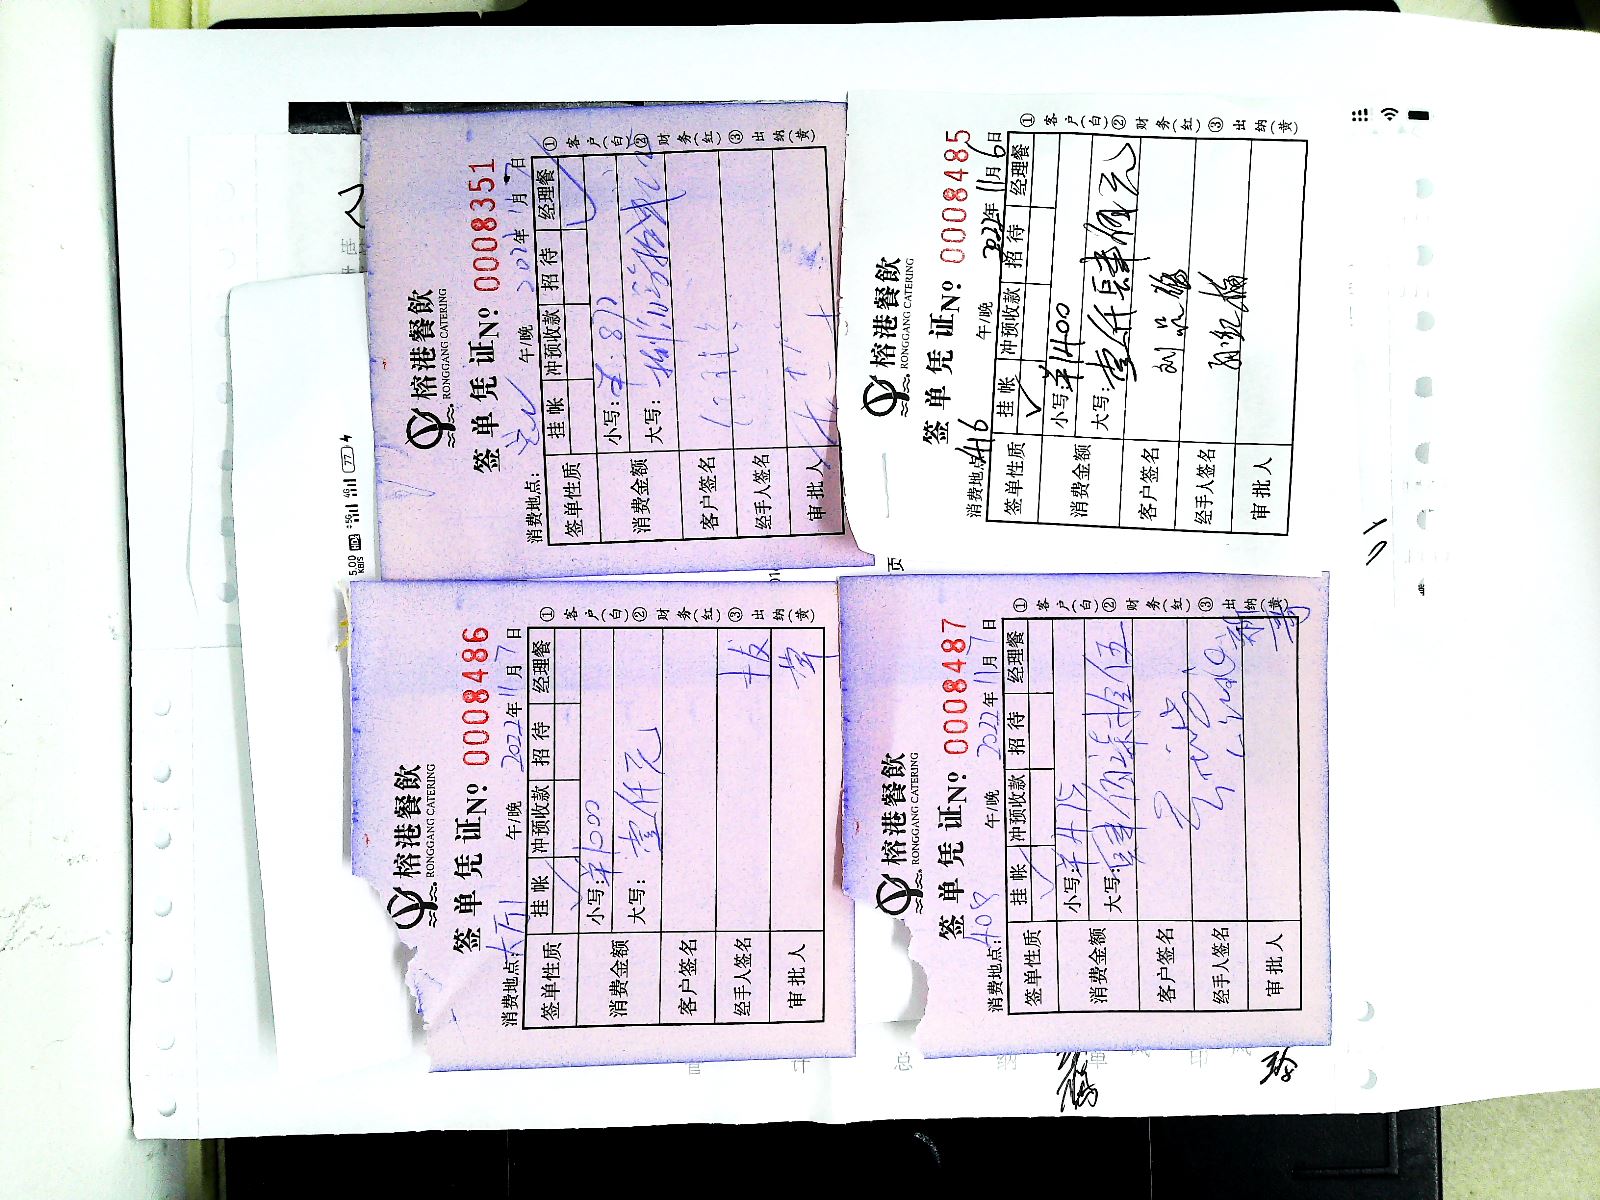 榕港餐飲
RONGGANG CATERING
签单凭证 Nº 0008351
消费地点: 午/晚 2022年1月7日
签单性质 挂帐 冲预收款 招待 经理餐
消费金额 小写:
大写:
客户签名
经手人签名
审批人
① 客户(白) ② 财务(红) ③ 出纳(黄)
榕港餐飲
RONGGANG CATERING
签单凭证 Nº 0008485
消费地点: 416 午/晚 2022年11月6日
签单性质 挂帐 ✓ 冲预收款 招待 经理餐
消费金额 小写: ¥1400
大写: 壹仟肆佰元
客户签名
经手人签名
审批人
① 客户(白) ② 财务(红) ③ 出纳(黄)
榕港餐飲
RONGGANG CATERING
签单凭证 Nº 0008486
消费地点: 大厅 午/晚 2022年11月7日
签单性质 挂帐 ✓ 冲预收款 招待 经理餐
消费金额 小写: ¥1000
大写: 壹仟元
客户签名
经手人签名
审批人
① 客户(白) ② 财务(红) ③ 出纳(黄)
榕港餐飲
RONGGANG CATERING
签单凭证 Nº 0008487
消费地点: 408 午/晚 2022年11月7日
签单性质 挂帐 ✓ 冲预收款 招待 经理餐
消费金额 小写: ¥475
大写: 肆佰柒拾伍
客户签名
经手人签名
审批人
① 客户(白) ② 财务(红) ③ 出纳(黄)
5.00 KB/S HD 5G 4G 77
页